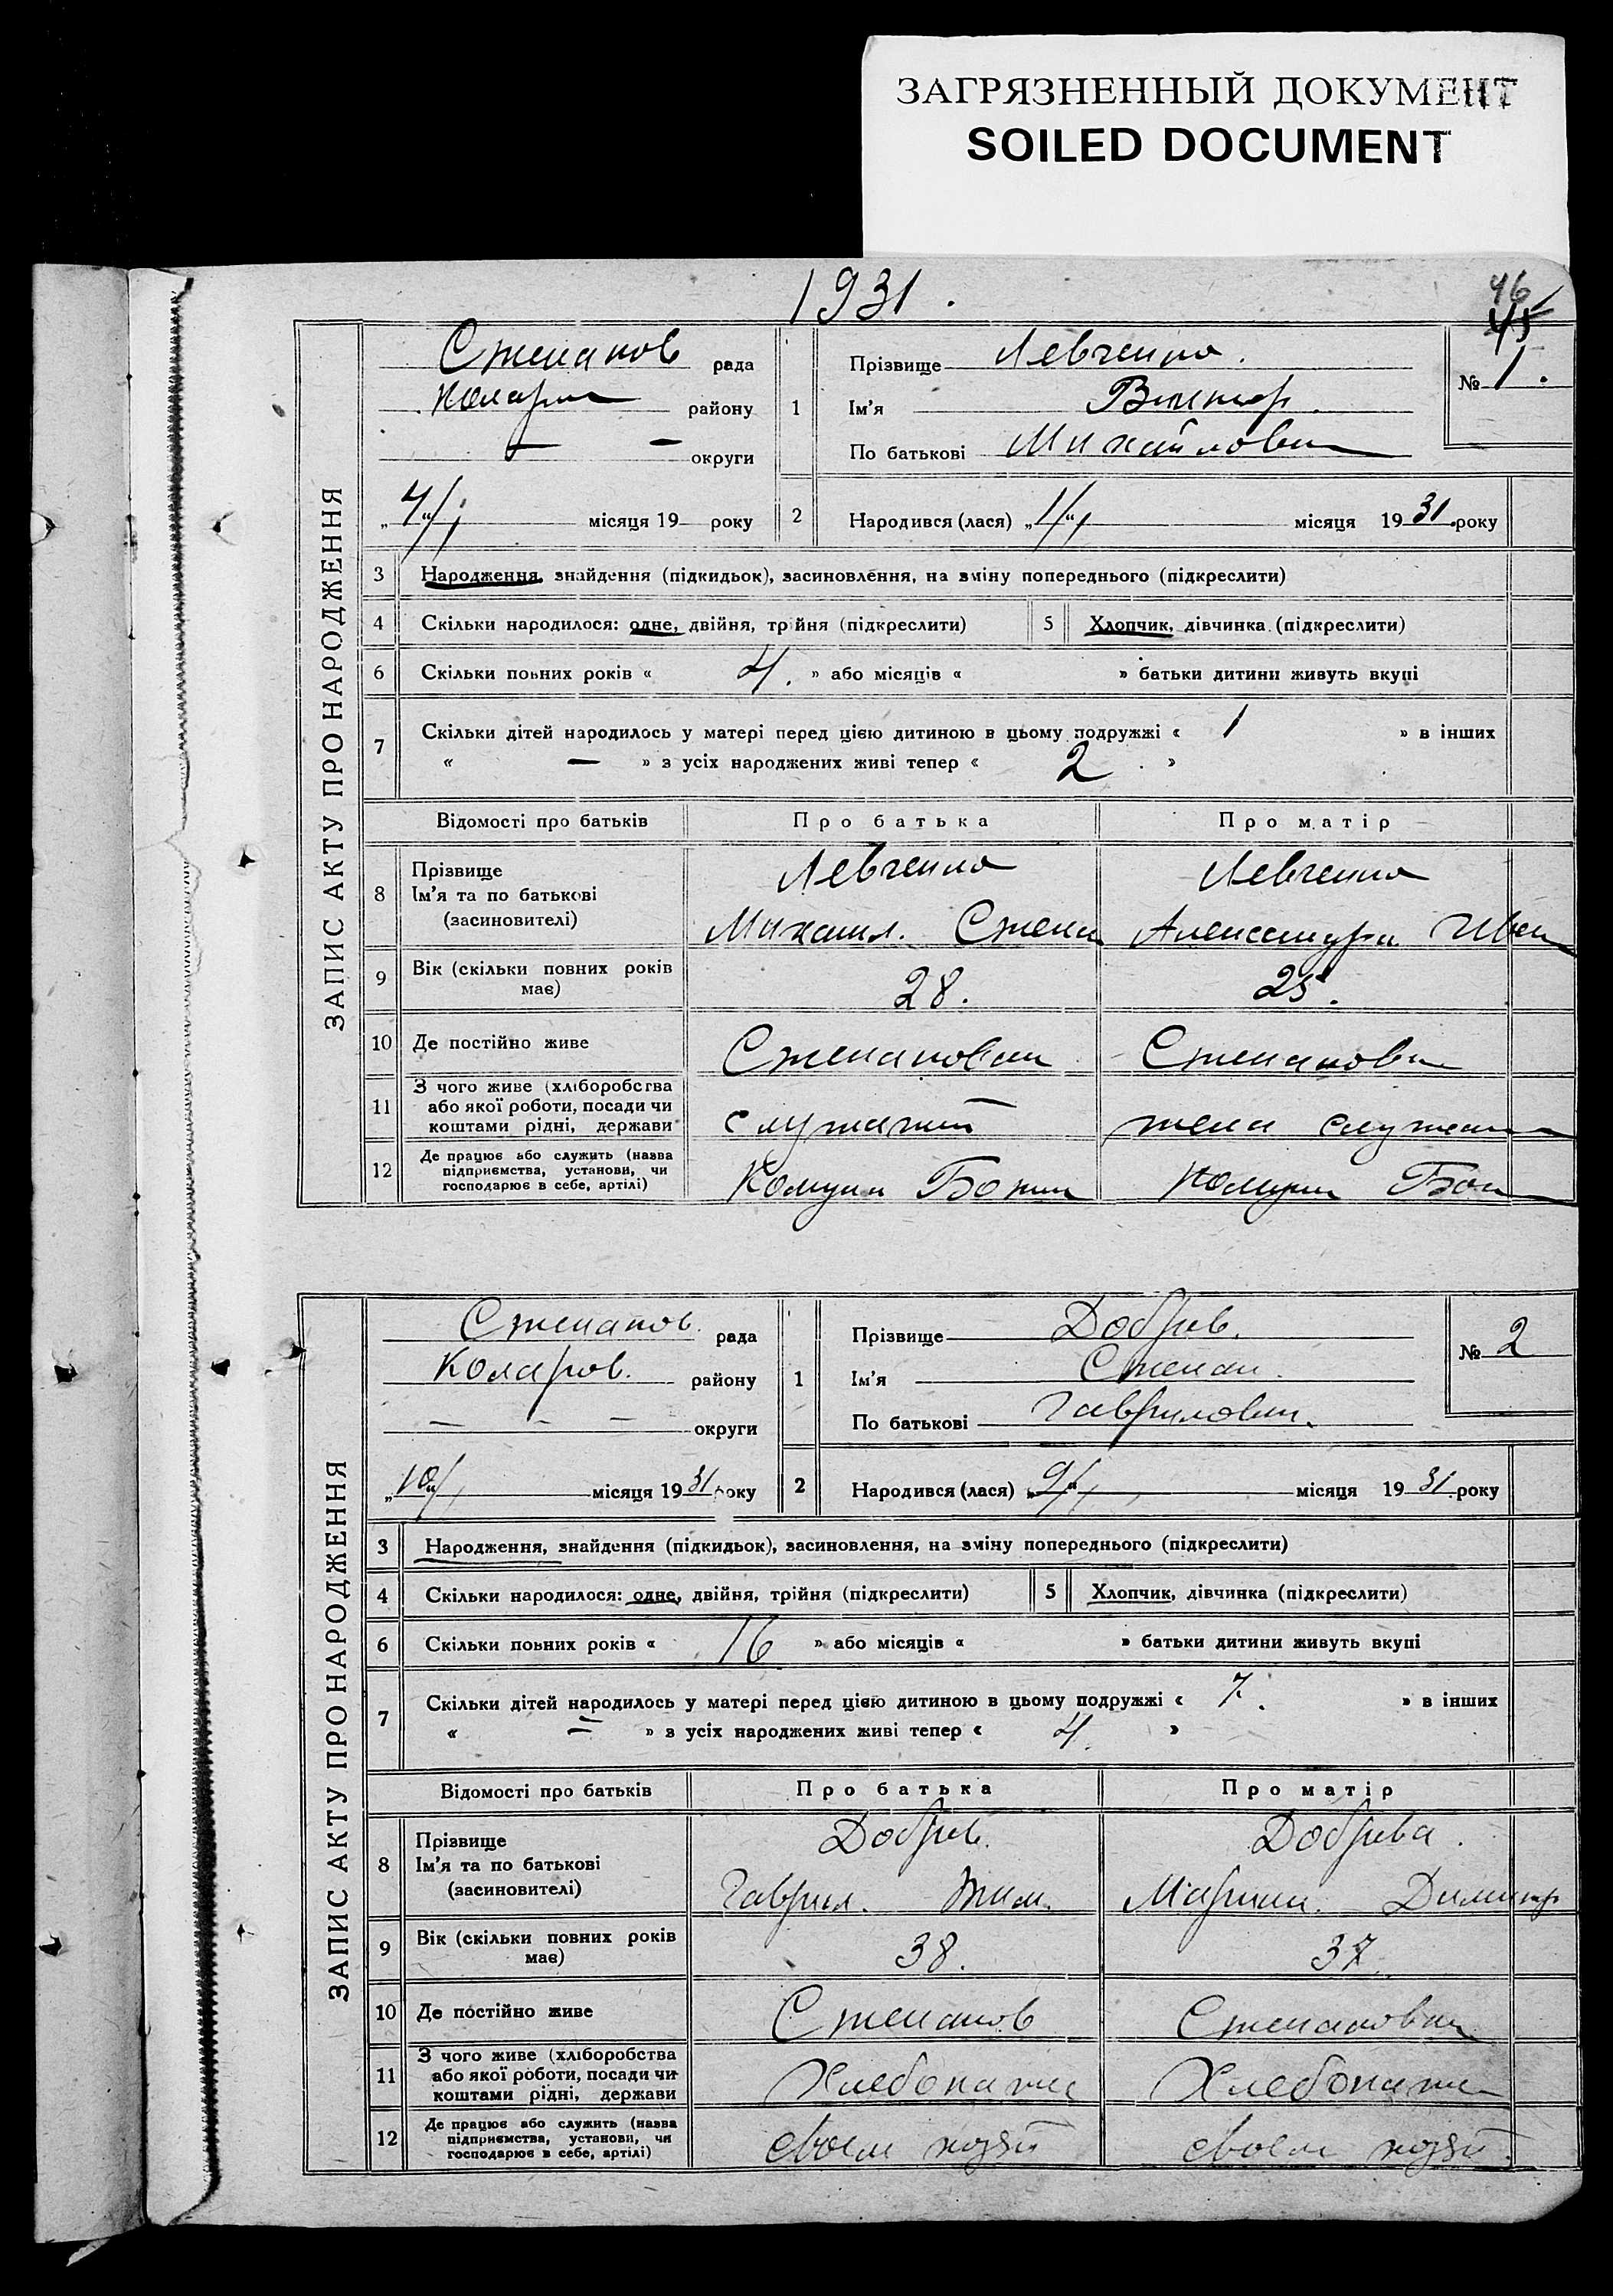 ЗАГРЯЗНЕННЫЙ ДОКУМЕНТ
SOILED DOCUMENT
1931.
46
45
ЗАПИС АКТУ ПРО НАРОДЖЕННЯ
Степанов рада
Коларов району
— — округи
„4/1“ місяця 19 року
1
Прізвище Левченко.
Ім'я Виктор.
По батькові Михайлович
№ 1.
2
Народився (лася) „1/1“ місяця 1931. року
3 Народження, знайдення (підкидьок), засиновлення, на зміну попереднього (підкреслити)
4 Скільки народилося: одне, двійня, трійня (підкреслити) 5 Хлопчик, дівчинка (підкреслити)
6 Скільки повних років « 4. » або місяців « » батьки дитини живуть вкупі
7 Скільки дітей народилось у матері перед цією дитиною в цьому подружжі « 1 » в інших
« — » з усіх народжених живі тепер « 2 »
Відомості про батьків Про батька Про матір
8 Прізвище Левченко Левченко
Ім'я та по батькові
(засиновителі) Михаил. Степан Александра Иван
9 Вік (скільки повних років має) 28. 25.
10 Де постійно живе Степановка Степановка
11 З чого живе (хліборобства або якої роботи, посади чи коштами рідні, держави служащий жена служащ
12 Де працює або служить (назва підприємства, установи, чи господарює в себе, артілі) Комуна Комуна
ЗАПИС АКТУ ПРО НАРОДЖЕННЯ
Степанов. рада
Коларов. району
— — — округи
„10/1“ місяця 1931 року
1
Прізвище Добрев.
Ім'я Степан.
По батькові Гаврилович.
№ 2
2
Народився (лася) „9/1“ місяця 1931. року
3 Народження, знайдення (підкидьок), засиновлення, на зміну попереднього (підкреслити)
4 Скільки народилося: одне, двійня, трійня (підкреслити) 5 Хлопчик, дівчинка (підкреслити)
6 Скільки повних років « 16 » або місяців « » батьки дитини живуть вкупі
7 Скільки дітей народилось у матері перед цією дитиною в цьому подружжі « 7. » в інших
« — » з усіх народжених живі тепер « 4 »
Відомості про батьків Про батька Про матір
8 Прізвище Добрев. Добрева.
Ім'я та по батькові
(засиновителі) Гаврил. Тим. Марина. Димитр
9 Вік (скільки повних років має) 38. 37.
10 Де постійно живе Степанов Степановка
11 З чого живе (хліборобства або якої роботи, посади чи коштами рідні, держави Хлебопаш Хлебопаш
12 Де працює або служить (назва підприємства, установи, чи господарює в себе, артілі) своем хозяй своем хозяй